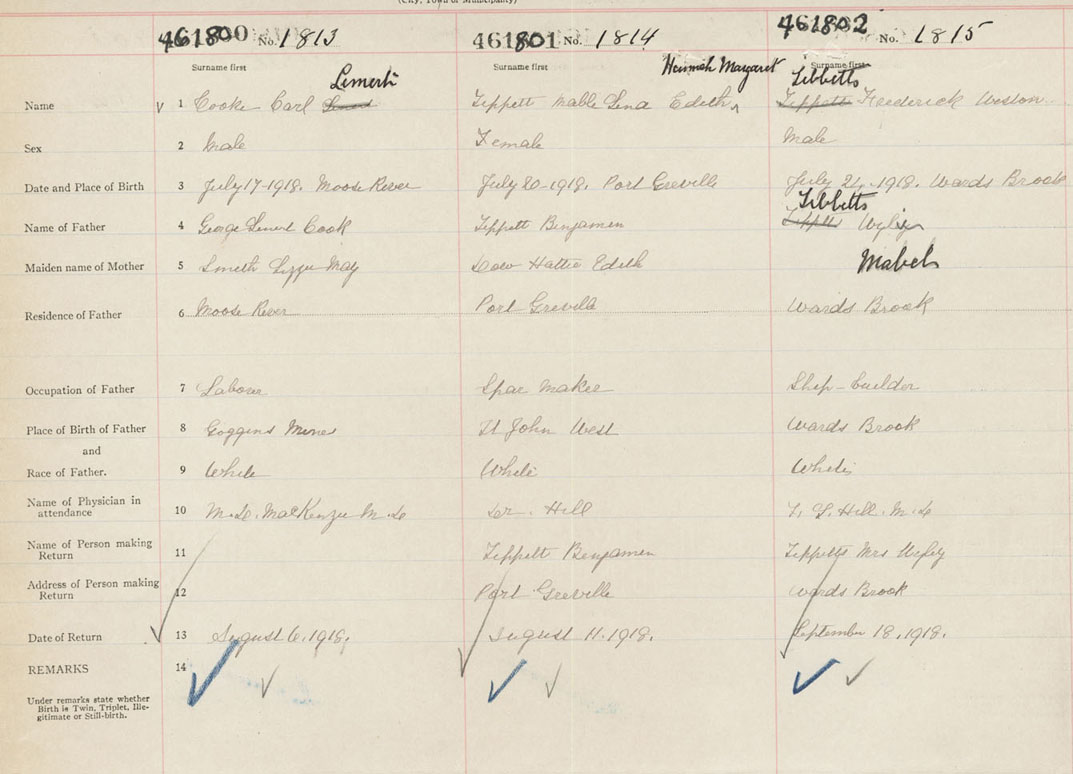 (City, Town or Municipality)
461800 No. 1813 461801 No. 1814 461802 No. 1815
Surname first Surname first Hannah Margaret Surname first
Lemert Tibbetts
Name 1 Cooke Carl Tippett Mable Lena Edith Tippett Frederick Weston
Sex 2 Male Female Male
Date and Place of Birth 3 July 17-1918. Moose River July 20-1918. Port Greville July 21-1918. Wards Brook
Tibbetts
Name of Father 4 George Cook Tippett Benjamen
Maiden name of Mother 5 Smith Lizzie May Hattie Edith Mabel
Residence of Father 6 Moose River Port Greville Wards Brook
Occupation of Father 7 Laborer Spar Maker Ship-builder
Place of Birth of Father 8 Goggins Mines St John West Wards Brook
and
Race of Father. 9 White White White
Name of Physician in
attendance 10 MacKenzie M. D Dr. Hill Hill. M. D
Name of Person making
Return 11 Tippett Benjamen Tippetts Mrs
Address of Person making
Return 12 Port Greville Wards Brook
Date of Return 13 August 6. 1918. August 11. 1918. September 18. 1918.
REMARKS 14
Under remarks state whether
Birth is Twin, Triplet, Ille-
gitimate or Still-birth.